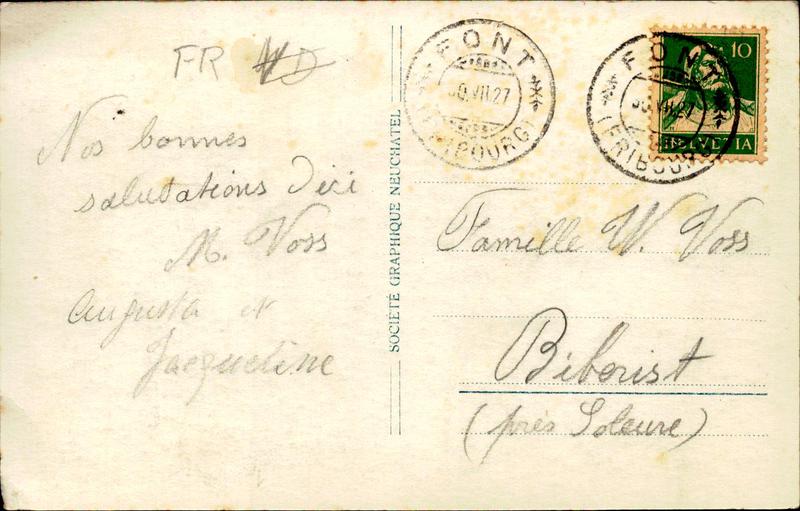 FR VD
Nos bonnes
salutations d'ici
M. Voss
Augusta et
Jacqueline
SOCIÉTÉ GRAPHIQUE NEUCHATEL
FONT
30.VII.27
(FRIBOURG)
FONT
30.VII.27
(FRIBOURG)
10
HELVETIA
Famille W. Voss
Biberist
(près Soleure)